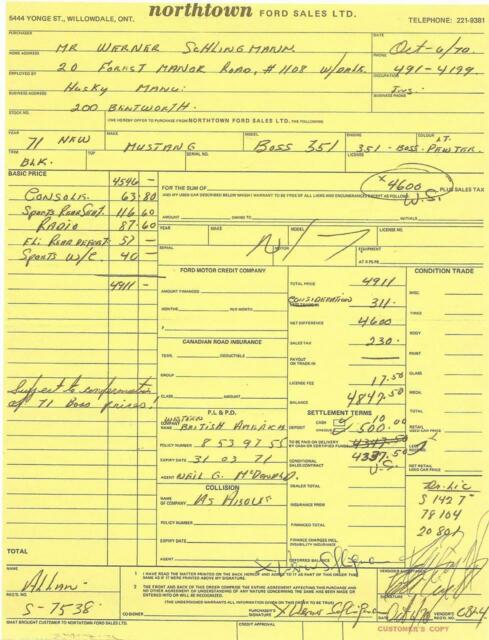 5444 YONGE ST., WILLOWDALE, ONT.
northtown FORD SALES LTD.
TELEPHONE: 221-9381
PURCHASER
MR WERNER SCHLINGMANN.
DATE
Oct-6/70
HOME ADDRESS
20 FOREST MANOR ROAD, #1108 W/DALE
PHONE
491-4199
EMPLOYED BY
HUSKY MANU:
OCCUPATION
BUSINESS ADDRESS
200 BENTWORTH.
BUSINESS PHONE
STOCK NO.
I/WE HEREBY OFFER TO PURCHASE FROM NORTHTOWN FORD SALES LTD. THE FOLLOWING
YEAR 71 NEW
MAKE MUSTANG
MODEL BOSS 351
ENGINE 351-BOSS
COLOUR LT. PEWTER
TRIM BLK.
TOP
SERIAL NO.
LICENSE
BASIC PRICE 4546 -
CONSOLE. 63-80
SPORTS REAR SEAT. 116-60
RADIO 87-60
ELI REAR DEFOST. 57 -
SPORTS W/C. 40 -
4911 -
Subject to confirmation
of 71 Boss prices!
TOTAL
FOR THE SUM OF
x 4600 PLUS SALES TAX
W.S.
AND MY USED CAR DESCRIBED BELOW WHICH I WARRANT TO BE FREE OF ALL LIENS AND ENCUMBRANCES EXCEPT AS FOLLOWS
AMOUNT
OWING TO
INITIALS
YEAR
MAKE
MODEL
LICENSE NO.
SERIAL
MOTOR
EQUIPMENT
N/T
AT PS PB
FORD MOTOR CREDIT COMPANY
AMOUNT FINANCED
MONTHS
PER MONTH
CANADIAN ROAD INSURANCE
TERM.
DEDUCTIBLE
GROUP
CLASS
AMOUNT
P.L. & P.D.
COMPANY NAME WESTERN BRITISH AMERICA
POLICY NUMBER 8 53 97 55
EXPIRY DATE 31 03 71
AGENT NEIL G. McDONALD.
COLLISION
NAME OF COMPANY AS ABOVE
POLICY NUMBER
EXPIRY DATE
AGENT
TOTAL PRICE 4911
CONSIDERATION 311.
NET DIFFERENCE 4600
SALES TAX 230.
PAYOUT ON TRADE IN
LICENSE FEE 17.50
BALANCE 4847.50
SETTLEMENT TERMS
DEPOSIT
CASH 10.00
CHEQUE 500.00
TO BE PAID ON DELIVERY BY CASH OR CERTIFIED FUNDS 4347.50
CONDITIONAL SALES CONTRACT 4337.50
W.S.
DEALER TOTAL
INSURANCE PREM
FINANCED TOTAL
FINANCE CHARGES INCL. DISABILITY INSURANCE
DEFERRED BALANCE
CONDITION TRADE
MISC.
TIRES
BODY
PAINT
GLASS
MECH.
TOTAL
RETAIL USED CAR PRICE
LESS
NET RETAIL USED CAR PRICE
Dr. Lic
S 1427
78104
NAME ALLAN
REG'D NO. S-7538.
1 I HAVE READ THE MATTER PRINTED ON THE BACK HEREOF AND AGREE TO IT AS PART OF THIS ORDER THE SAME AS IF IT WERE PRINTED ABOVE MY SIGNATURE.
2 THE FRONT AND BACK OF THIS ORDER COMPRISE THE ENTIRE AGREEMENT AFFECTING THIS PURCHASE AND NO OTHER AGREEMENT OR UNDERSTANDING OF ANY NATURE CONCERNING THE SAME HAS BEEN MADE OR ENTERED INTO OR WILL BE RECOGNIZED.
CO-SIGNER
PURCHASER'S SIGNATURE
DATE
CUSTOMER'S COPY
WHAT BROUGHT CUSTOMER TO NORTHTOWN FORD SALES LTD.